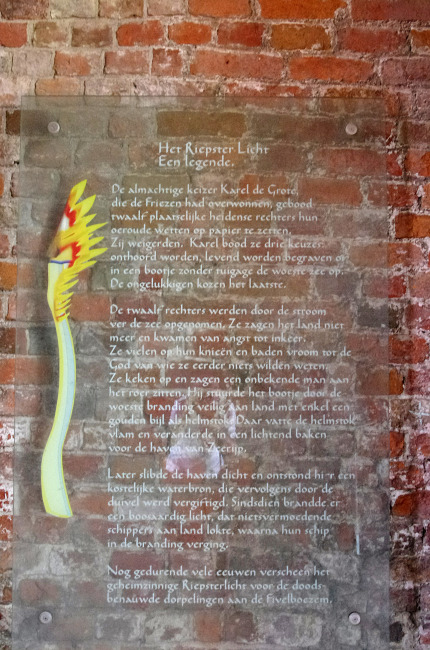 Het Riepster Licht
Een legende.
De almachtige keizer Karel de Grote,
die de Friezen had overwonnen, gebood
twaalf plaatselijke heidense rechters hun
oeroude wetten op papier te zetten.
Zij weigerden. Karel bood ze drie keuzes:
onthoofd worden, levend worden begraven of
in een bootje zonder tuigage de woeste zee op.
De ongelukkigen kozen het laatste.
De twaalf rechters werden door de stroom
ver de zee opgenomen. Ze zagen het land niet
meer en kwamen van angst tot inkeer.
Ze vielen op hun knieën en baden vroom tot de
God van wie ze eerder niets wilden weten.
Ze keken op en zagen een onbekende man aan
het roer zitten. Hij stuurde het bootje door de
woeste branding veilig aan land met enkel een
gouden bijl als helmstok. Daar vatte de helmstok
vlam en veranderde in een lichtend baken
voor de haven van Zeerijp.
Later slibde de haven dicht en ontstond hier een
kostelijke waterbron, die vervolgens door de
duivel werd vergiftigd. Sindsdien brandde er
een boosaardig licht, dat nietsvermoedende
schippers aan land lokte, waarna hun schip
in de branding verging.
Nog gedurende vele eeuwen verscheen het
geheimzinnige Riepsterlicht voor de doods-
benauwde dorpelingen aan de Fivelboezem.